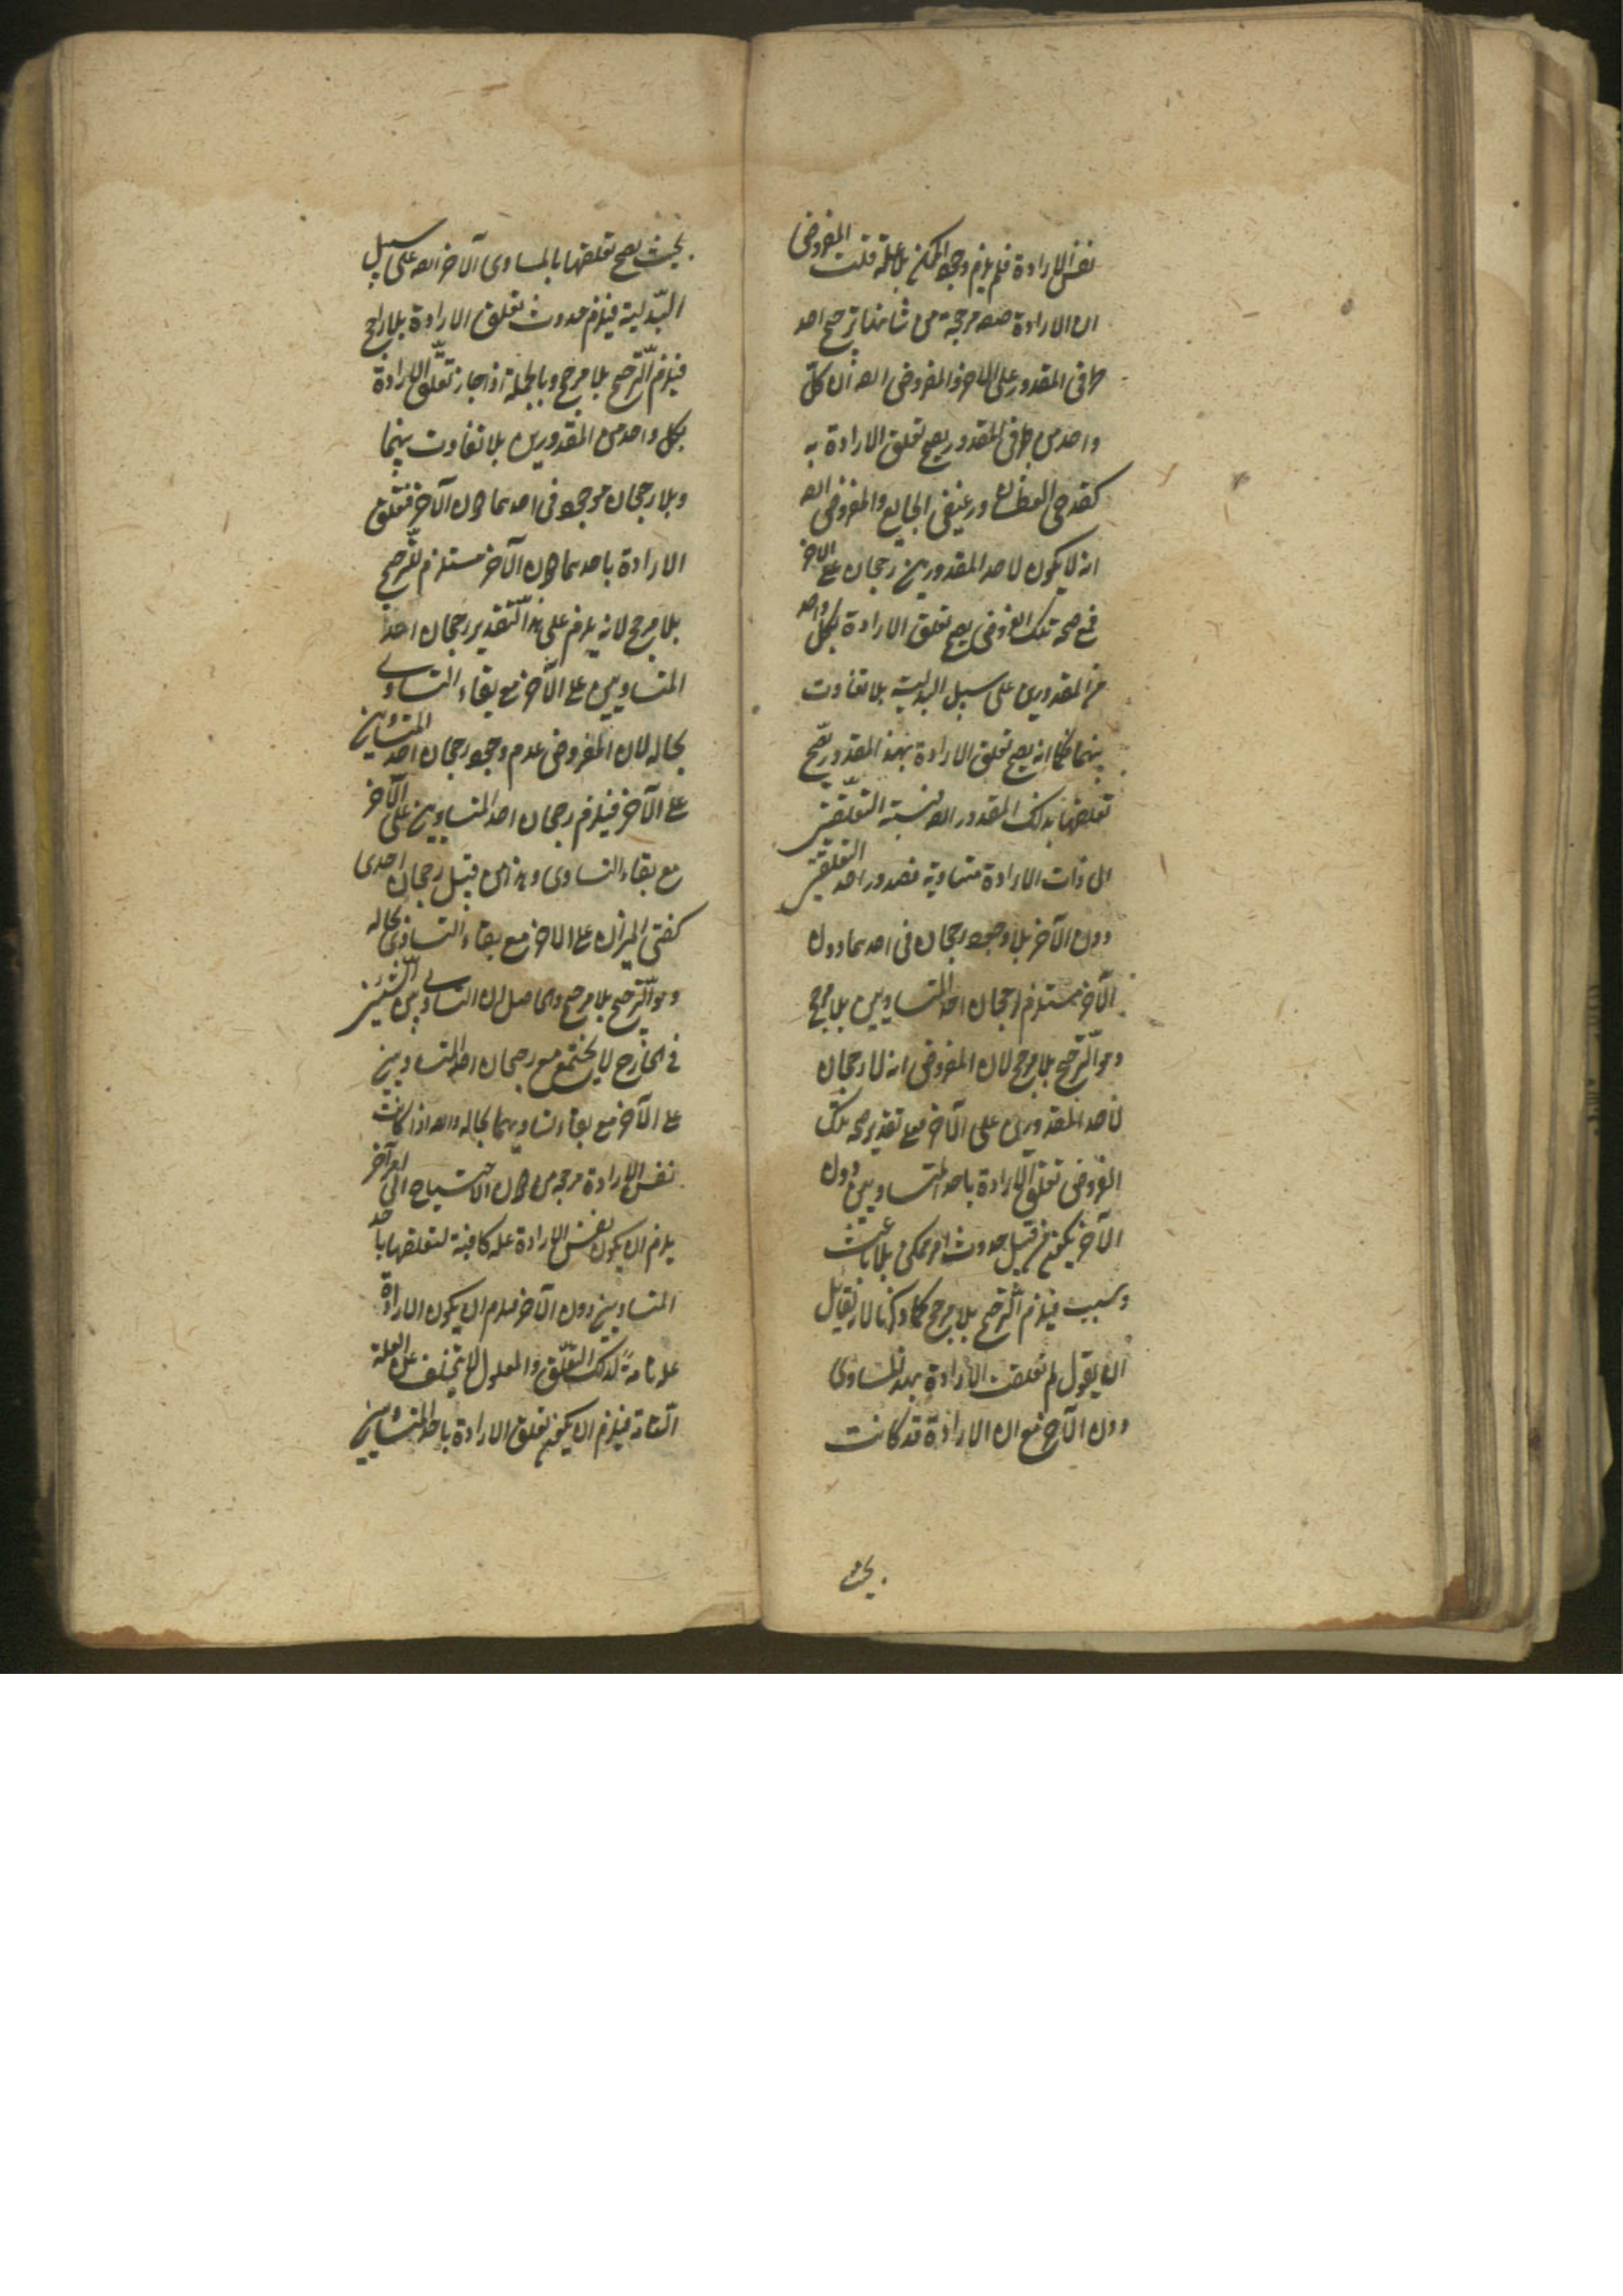 نفس الارادة فلم يلزم وجود الممكن بلا علة قلت المفروض
ان الارادة صفة مرجحة من شانها ترجيح احد
طرفى المقدور على الاخر والمفروض ايضا ان كل
واحد من طرفى المقدور يصح تعلق الارادة به
كقدحى العطشان ورغيفى الجايع والمفروض ايضا
انه لا يكون لاحد المقدورين رجحان على الاخر
فمع صحة تلك الفروض يصح تعلق الارادة بكل واحد
من المقدورين على سبيل البدلية بلا تفاوت
بينهما فكما انه يصح تعلق الارادة بهذا المقدور يصح
تعلقها بذلك المقدور ايضا نسبة التعلقين
الى ذات الارادة متساوية فصدور احد التعلقين
دون الآخر بلا وجود رجحان فى احدهما دون
الآخر مستلزم لرجحان احد المتساويين بلا مرجح
وهو الترجيح بلا مرجح لان المفروض انه لا رجحان
لاحد المقدورين على الآخر فعلى تقدير صحة تلك
الفروض تعلق الارادة باحد المتساويين دون
الآخر يكون من قبيل حدوث امر ممكن بلا باعث
وسبب فيلزم الترجيح بلا مرجح كما ذكرنا لا يقال
ان يقول لم تعلقت الارادة بهذا المساوى
دون الآخر مع ان الارادة قد كانت
بحيث
بحيث يصح تعلقها بالمساوى الآخر ايضا على سبيل
البدلية فيلزم حدوث تعلق الارادة بلا مرجح
فيلزم الترجيح بلا مرجح وبالجملة اذا جاز تعلق الارادة
بكل واحد من المقدورين بلا تفاوت بينهما
وبلا رجحان موجود فى احدهما دون الآخر فتعلق
الارادة باحدهما دون الآخر مستلزم للترجيح
بلا مرجح لانه يلزم على هذا التقدير رجحان احد
المتساويين على الآخر مع بقاء التساوى
بحاله لان المفروض عدم وجود رجحان احد المتساويين
على الآخر فيلزم رجحان احد المتساويين على الآخر
مع بقاء التساوى وهذا من قبيل رجحان احدى
كفتى الميزان على الاخر مع بقاء التساوى بحاله
وهو الترجيح بلا مرجح والحاصل ان التساوى بين الشيئين
فى الخارج لا يجتمع مع رجحان احد المتساويين
على الآخر مع بقاء تساويهما بحاله وايضا اذا كانت
نفس الارادة مرجحة من دون الاحتياج الى امر آخر
يلزم ان يكون نفس الارادة علة كافية لتعلقها باحد
المتساويين دون الآخر فيلزم ان يكون الارادة
علة تامة لذلك التعلق والمعلول لا يتخلف عن العلة
التامة فيلزم ان يكون تعلق الارادة باحد المتساويين